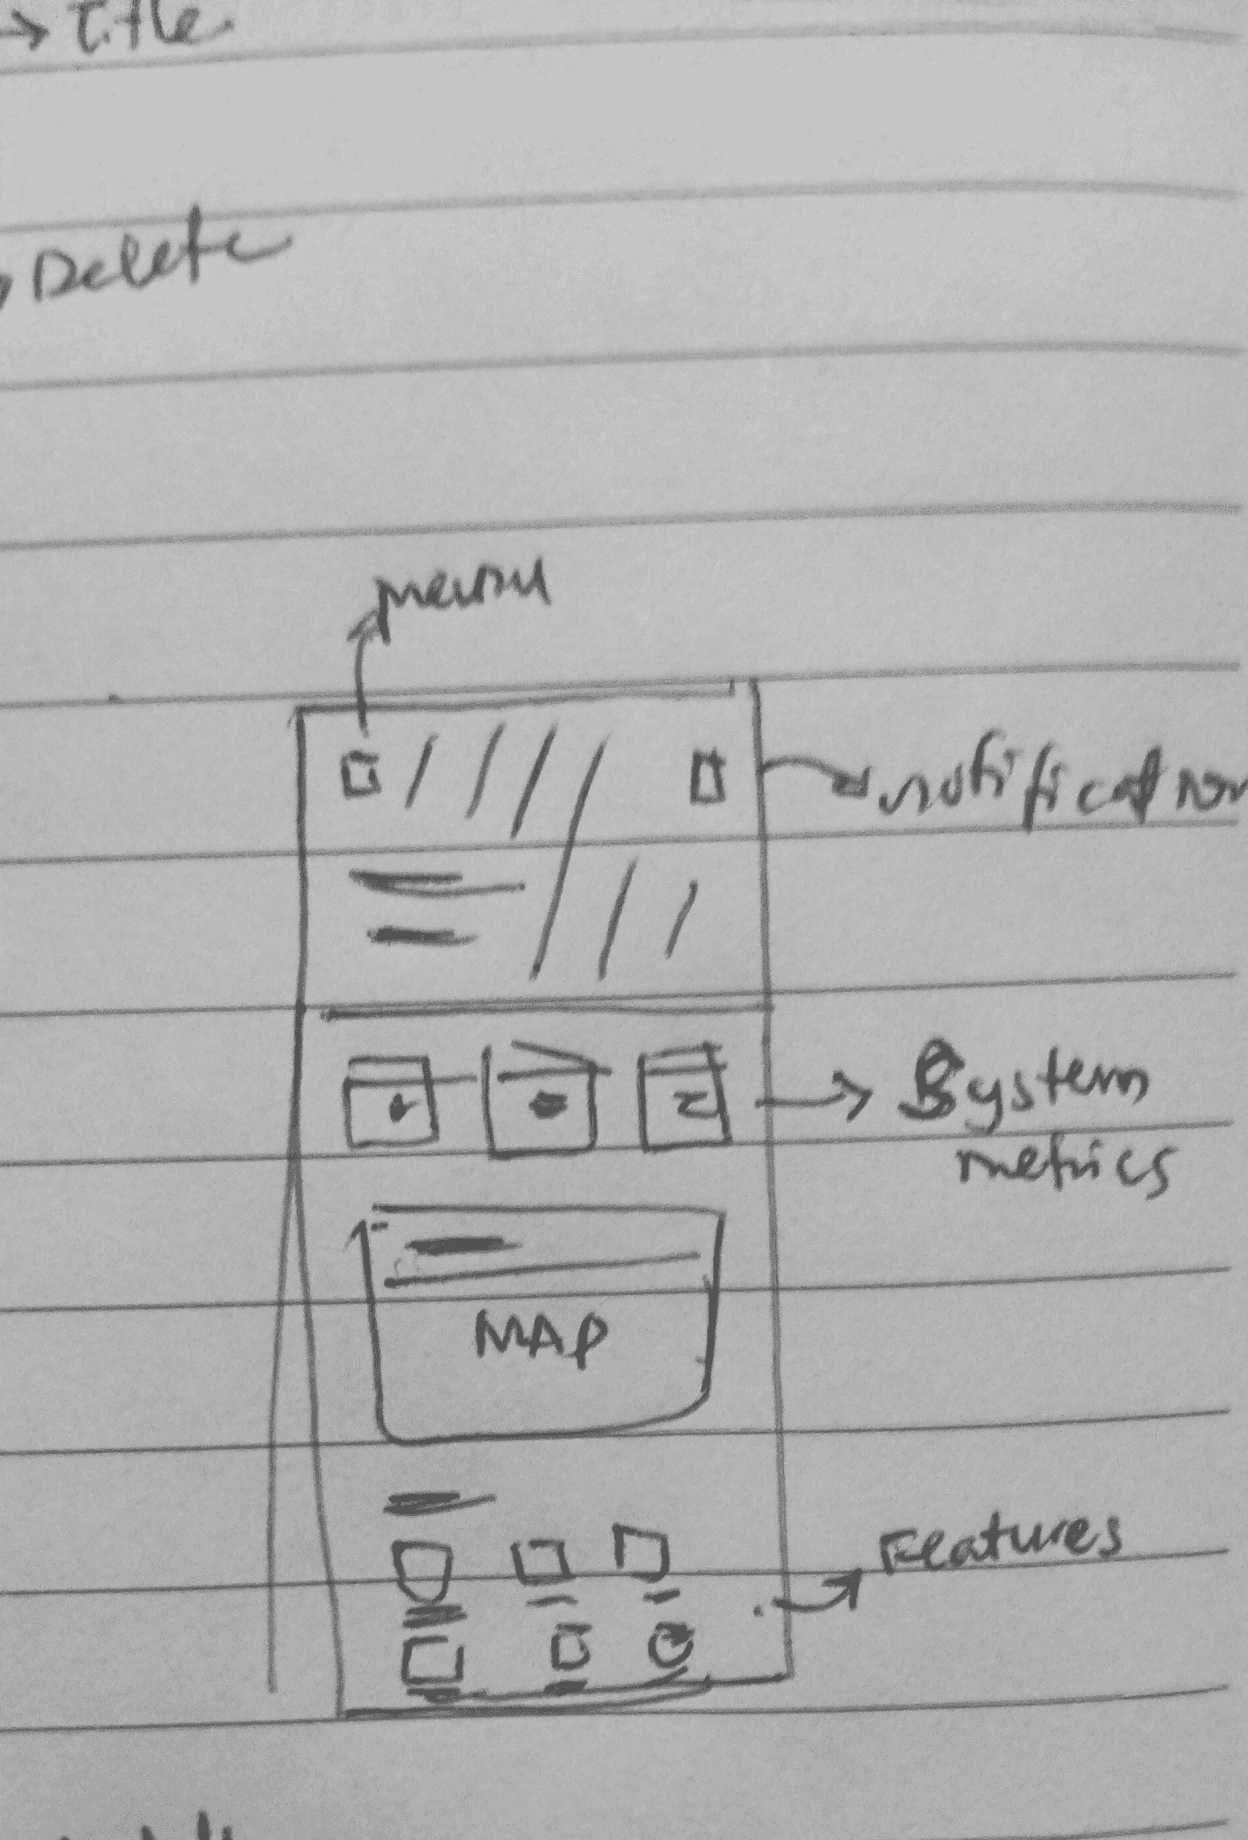 → title
Delete
menu
notification
System
metrics
MAP
Features